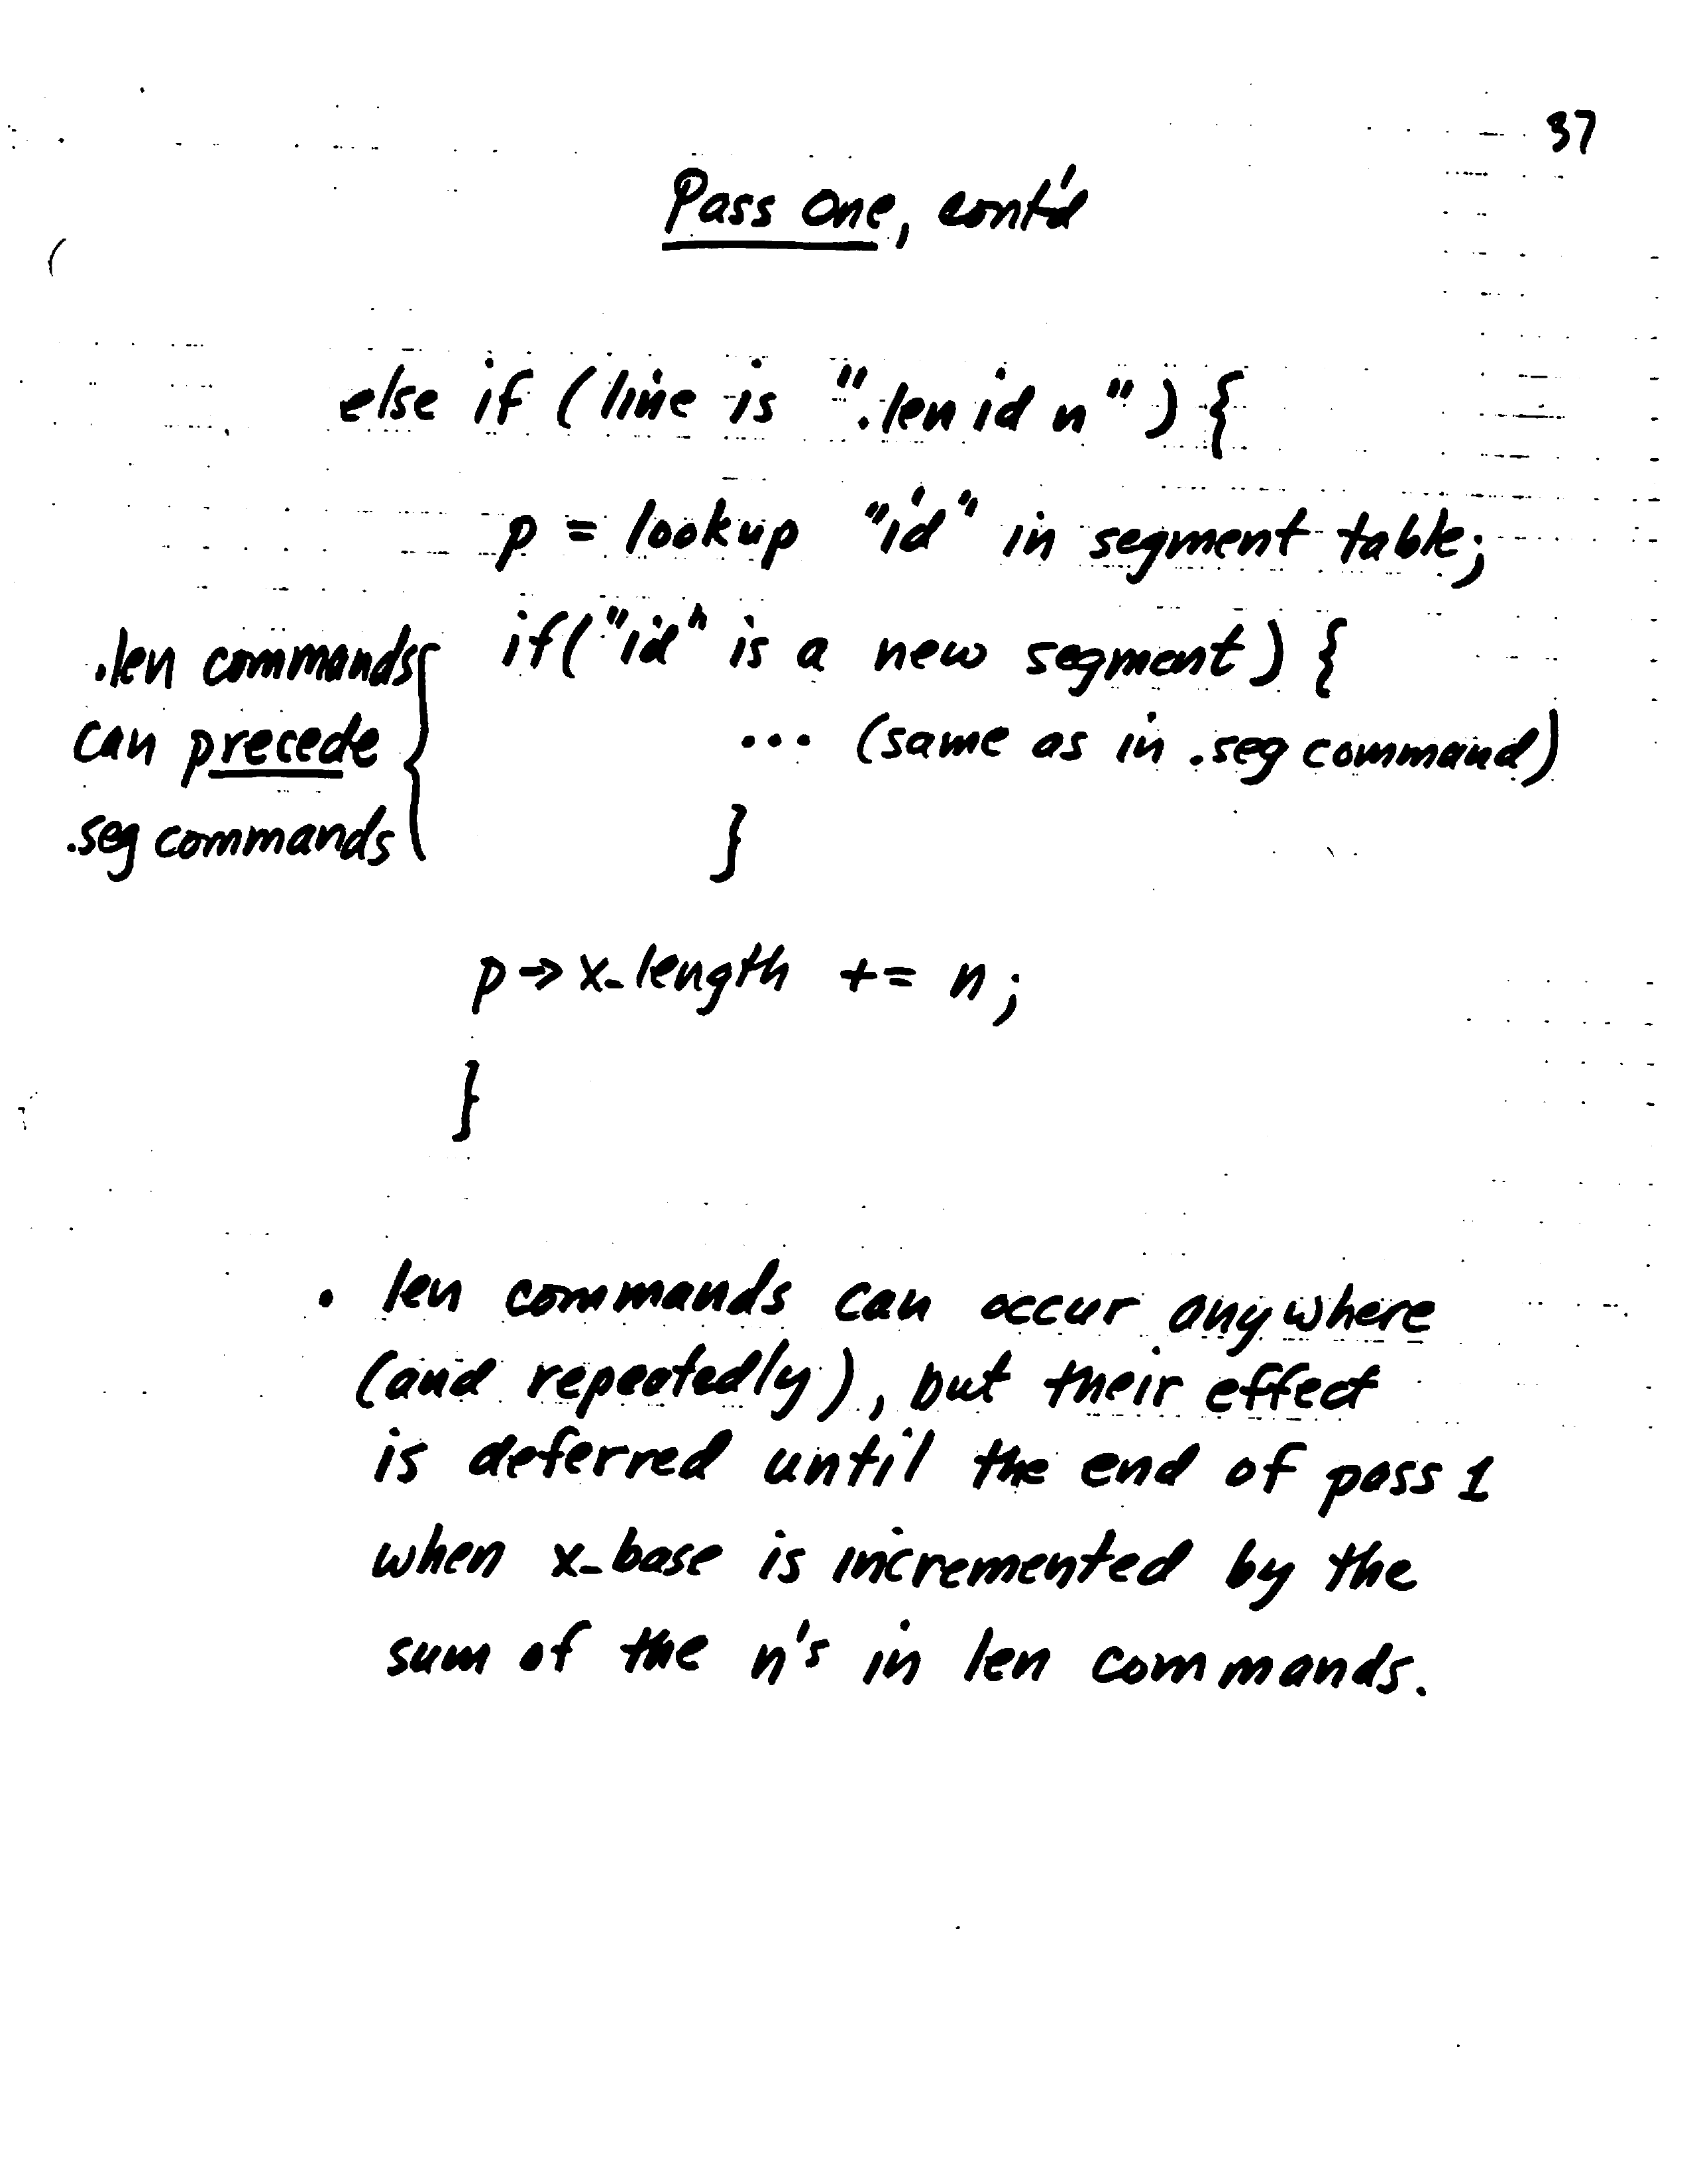 37
Pass One, cont'd
else if (line is ".len id n") {
p = lookup "id" in segment table;
if("id" is a new segment) {
... (same as in .seg command)
}
.len commands
can precede
.seg commands
p->x_length += n;
}
. len commands can occur anywhere
(and repeatedly), but their effect
is deferred until the end of pass 1
when x_base is incremented by the
sum of the n's in len commands.